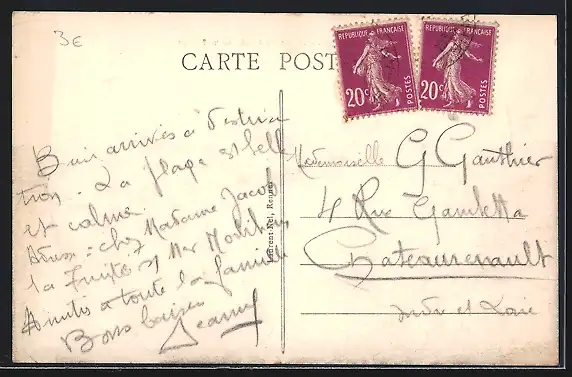 3€
CARTE POST
REPUBLIQUE FRANÇAISE
20c
POSTES
REPUBLIQUE FRANÇAISE
20c
POSTES
Bien arrivés à destina
tion. La plage est belle
et calme.
Adresse : chez Madame Jacob
la Trinité s/ Mer Morbihan
Amitiés à toute la famille
Bons baisers
Jeanne
Laurent-Nel, Rennes
Mademoiselle G Gauthier
4 Rue Gambetta
Chateaurenault
Indre et Loire